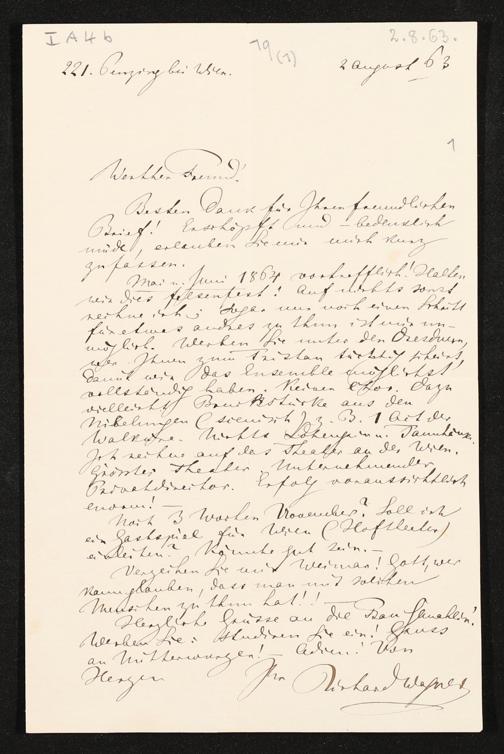 I A 4 b
79 (1)
2.8.63.
221. Penzing bei Wien.
2 August 63
1
Werther Freund!
Besten Dank für Ihren freundlichen
Brief! Erschöpft und – bedenklich
müde, erlauben Sie mir mich kurz
zu fassen.
Mai u. Juni 1864 vortrefflich! Halten
wir dies felsenfest! Auf nichts sonst
rechne ich: sogar nur noch einen Schritt
für etwas andres zu thun ist mir un-
möglich. Werben Sie unter den Dresdnern,
wer Ihnen zum Tristan tüchtig scheint,
damit wir das Ensemble möglichst
vollständig haben. Keinen Chor. Dazu
vielleicht Bruchstücke aus den
Nibelungen (scenisch) z. B. 1 Act der
Walküre. Nichts Lohengrin u. Tannhäuser.
Ich rechne auf das Theater an der Wien.
Grösstes Theater. Unternehmender
Privatdirector. Erfolg voraussichtlich
enorm! –
Noch 3 Worte. November? Soll ich
ein Gastspiel für Wien (Hoftheater)
einleiten? Könnte gut sein. –
Verzeihen Sie mir Weimar! Gott, wer
kann glauben, dass man mit solchen
Menschen zu thun hat!! –
Herzliche Grüsse an die Frau Gemahlin!
Werben Sie: studiren Sie ein!
an Mitterwurzer! – Adieu! Von
Herzen Ihr Richard Wagner